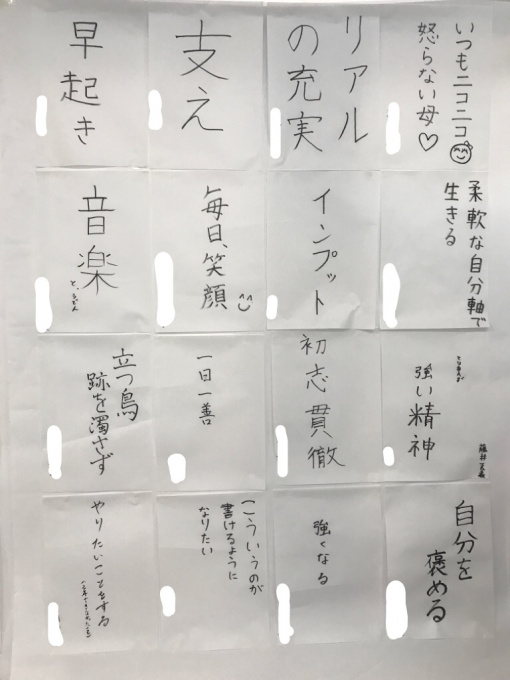 いつもニコニコ
怒らない母♡
リアル
の充実
支え
早起き
柔軟な自分軸で
生きる
インプット
毎日、笑顔
音楽
と、うどん
とりあえず
強い精神
初志貫徹
一日一善
立つ鳥
跡を濁さず
自分を
褒める
強くなる
こういうのが
書けるように
なりたい
やりたいことをする